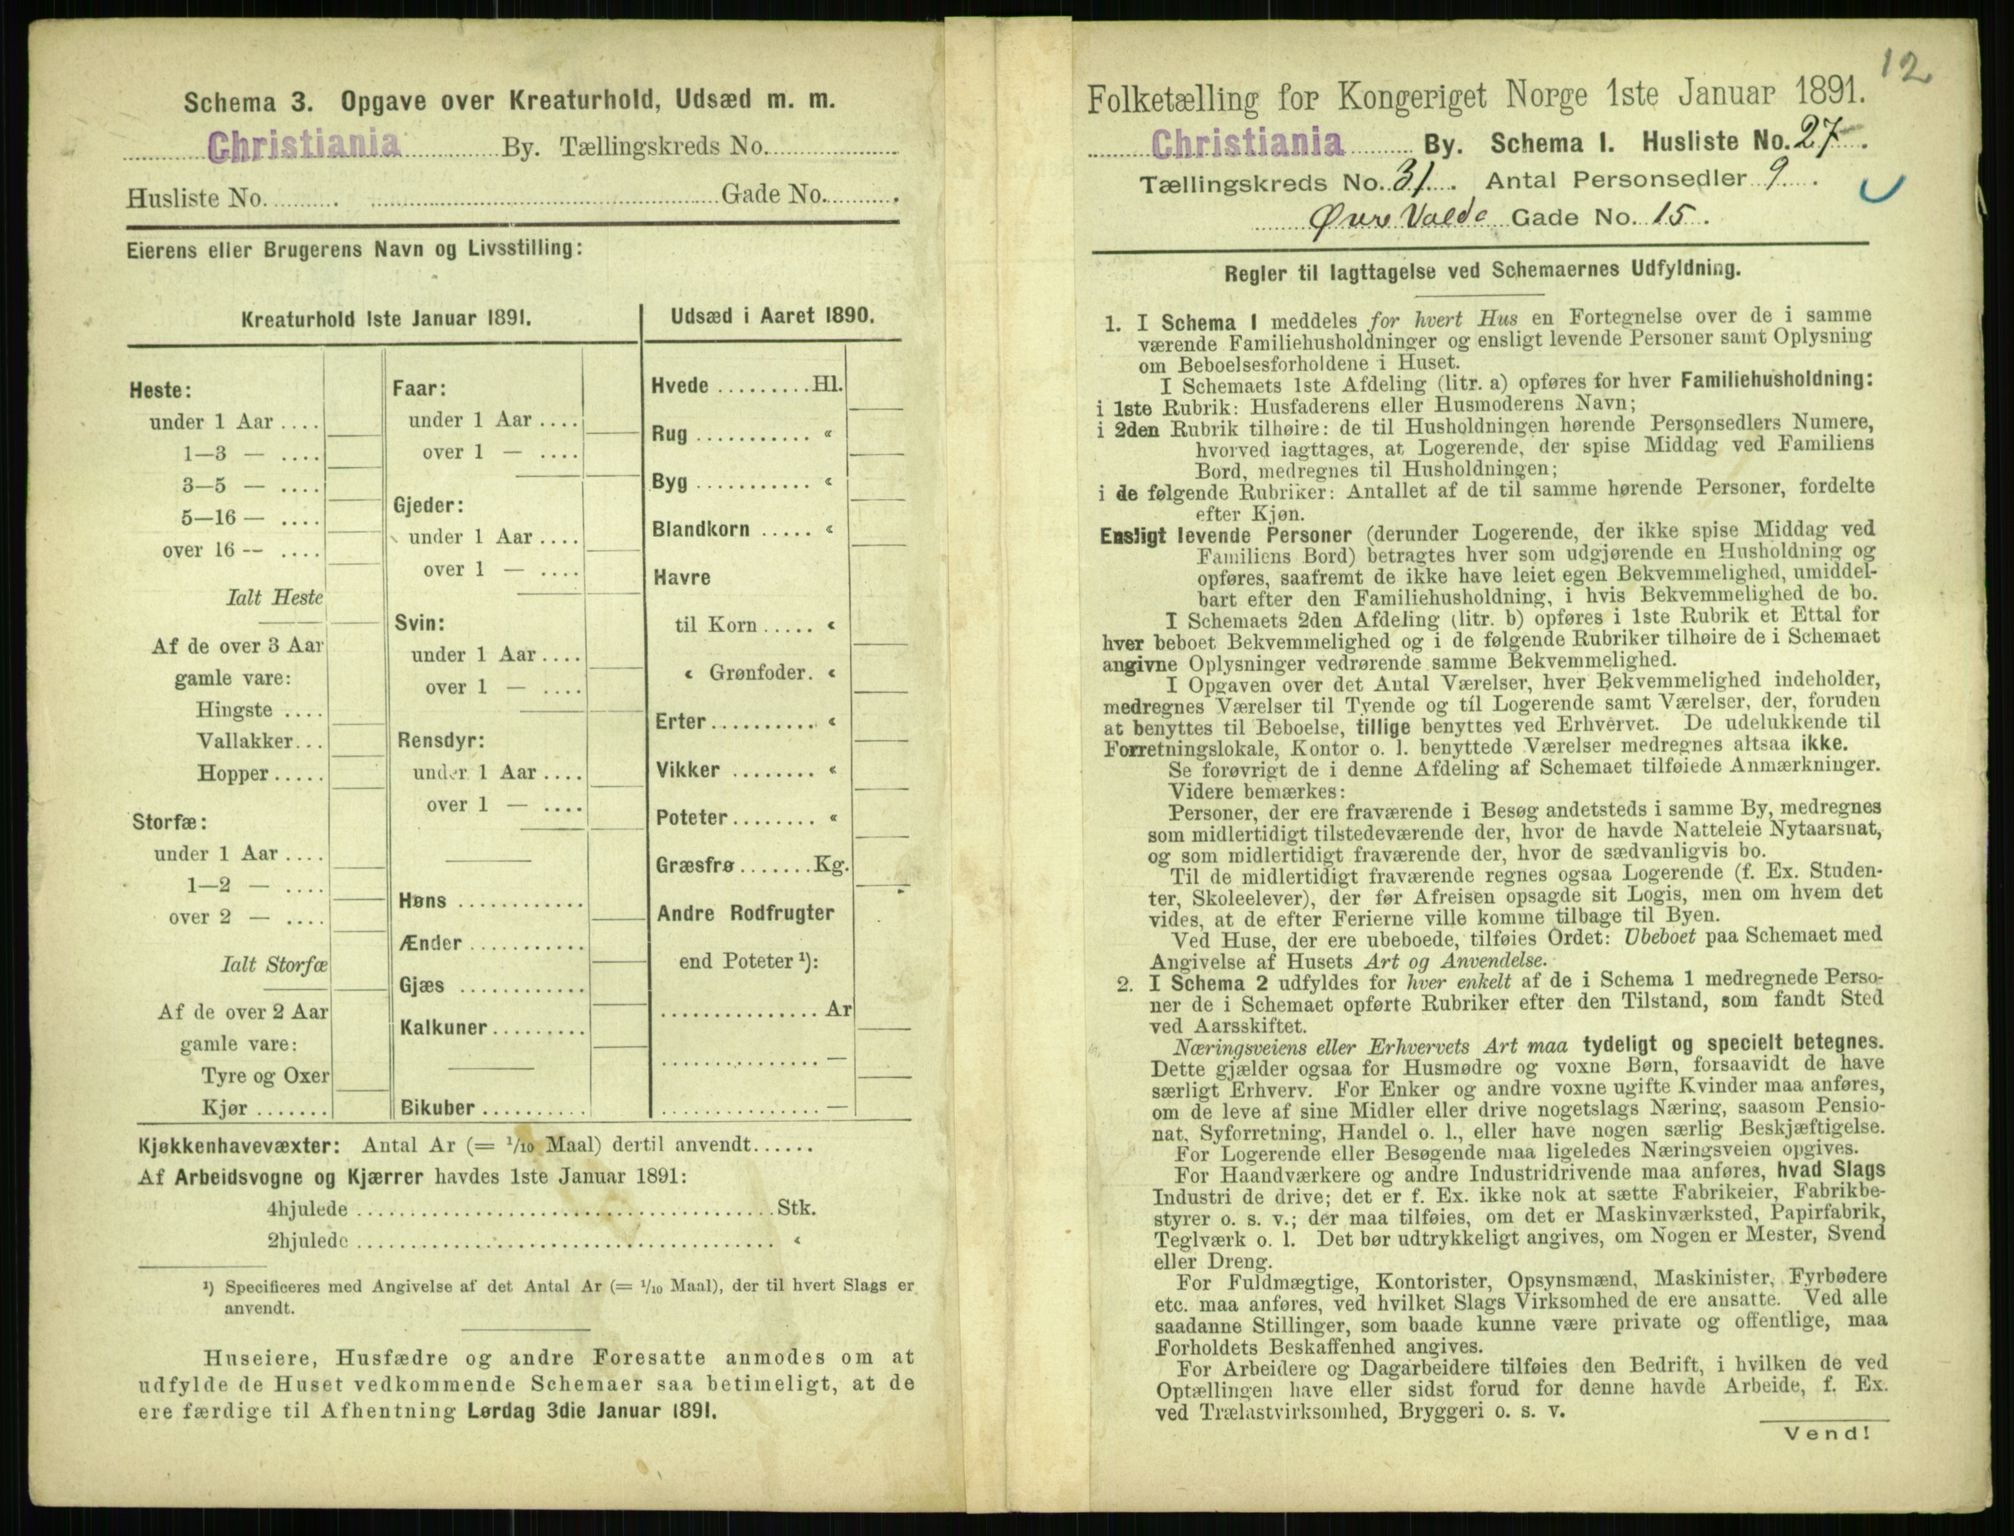 Schema 3. Opgave over Kreaturhold, Udsæd m. m.
Christiania By. Tællingskreds No.
Husliste No. . Gade No. .
Eierens eller Brugerens Navn og Livsstilling:
Kreaturhold 1ste Januar 1891.
Heste:
under 1 Aar ....
1—3 — ....
3—5 — ....
5—16 — ....
over 16 — ....
Ialt Heste
Af de over 3 Aar
gamle vare:
Hingste ....
Vallakker...
Hopper .....
Storfæ:
under 1 Aar ....
1—2 — ....
over 2 — ....
Ialt Storfæ
Af de over 2 Aar
gamle vare:
Tyre og Oxer
Kjør .......
Faar:
under 1 Aar ....
over 1 — ....
Gjeder:
under 1 Aar ....
over 1 — ....
Svin:
under 1 Aar ....
over 1 — ....
Rensdyr:
under 1 Aar ....
over 1 — ....
Høns ............
Ænder ...........
Gjæs ............
Kalkuner.........
Bikuber ..........
Udsæd i Aaret 1890.
Hvede .........Hl.
Rug ........... «
Byg ........... «
Blandkorn ..... «
Havre
til Korn ..... «
« Grønfoder. «
Erter.......... «
Vikker ........ «
Poteter........ «
Græsfrø .......Kg.
Andre Rodfrugter
end Poteter ¹):
............... Ar
............... —
............... —
Kjøkkenhavevæxter: Antal Ar (= 1/10 Maal) dertil anvendt......
Af Arbeidsvogne og Kjærrer havdes 1ste Januar 1891:
4hjulede .......................................Stk.
2hjulede ....................................... «
¹) Specificeres med Angivelse af det Antal Ar (= 1/10 Maal), der til hvert Slags er
anvendt.
Huseiere, Husfædre og andre Foresatte anmodes om at
udfylde de Huset vedkommende Schemaer saa betimeligt, at de
ere færdige til Afhentning Lørdag 3die Januar 1891.
12
Folketælling for Kongeriget Norge 1ste Januar 1891.
Christiania By. Schema I. Husliste No. 27 .
Tællingskreds No. 31 . Antal Personsedler 9 .
Øvre Volds Gade No. 15 .
Regler til Iagttagelse ved Schemaernes Udfyldning.
1. I Schema 1 meddeles for hvert Hus en Fortegnelse over de i samme
værende Familiehusholdninger og ensligt levende Personer samt Oplysning
om Beboelsesforholdene i Huset.
I Schemaets 1ste Afdeling (litr. a) opføres for hver Familiehusholdning:
i 1ste Rubrik: Husfaderens eller Husmoderens Navn;
i 2den Rubrik tilhøire: de til Husholdningen hørende Personsedlers Numere,
hvorved iagttages, at Logerende, der spise Middag ved Familiens
Bord, medregnes til Husholdningen;
i de følgende Rubriker: Antallet af de til samme hørende Personer, fordelte
efter Kjøn.
Ensligt levende Personer (derunder Logerende, der ikke spise Middag ved
Familiens Bord) betragtes hver som udgjørende en Husholdning og
opføres, saafremt de ikke have leiet egen Bekvemmelighed, umiddel-
bart efter den Familiehusholdning, i hvis Bekvemmelighed de bo.
I Schemaets 2den Afdeling (litr. b) opføres i 1ste Rubrik et Ettal for
hver beboet Bekvemmelighed og i de følgende Rubriker tilhøire de i Schemaet
angivne Oplysninger vedrørende samme Bekvemmelighed.
I Opgaven over det Antal Værelser, hver Bekvemmelighed indeholder,
medregnes Værelser til Tyende og til Logerende samt Værelser, der, foruden
at benyttes til Beboelse, tillige benyttes ved Erhvervet. De udelukkende til
Forretningslokale, Kontor o. l. benyttede Værelser medregnes altsaa ikke.
Se forøvrigt de i denne Afdeling af Schemaet tilføiede Anmærkninger.
Videre bemærkes:
Personer, der ere fraværende i Besøg andetsteds i samme By, medregnes
som midlertidigt tilstedeværende der, hvor de havde Natteleie Nytaarsnat,
og som midlertidigt fraværende der, hvor de sædvanligvis bo.
Til de midlertidigt fraværende regnes ogsaa Logerende (f. Ex. Studen-
ter, Skoleelever), der før Afreisen opsagde sit Logis, men om hvem det
vides, at de efter Ferierne ville komme tilbage til Byen.
Ved Huse, der ere ubeboede, tilføies Ordet: Ubeboet paa Schemaet med
Angivelse af Husets Art og Anvendelse.
2. I Schema 2 udfyldes for hver enkelt af de i Schema 1 medregnede Perso-
ner de i Schemaet opførte Rubriker efter den Tilstand, som fandt Sted
ved Aarsskiftet.
Næringsveiens eller Erhvervets Art maa tydeligt og specielt betegnes.
Dette gjælder ogsaa for Husmødre og voxne Børn, forsaavidt de have
særligt Erhverv. For Enker og andre voxne ugifte Kvinder maa anføres,
om de leve af sine Midler eller drive nogetslags Næring, saasom Pensio-
nat, Syforretning, Handel o. l., eller have nogen særlig Beskjæftigelse.
For Logerende eller Besøgende maa ligeledes Næringsveien opgives.
For Haandværkere og andre Industridrivende maa anføres, hvad Slags
Industri de drive; det er f. Ex. ikke nok at sætte Fabrikeier, Fabrikbe-
styrer o. s. v.; der maa tilføies, om det er Maskinværksted, Papirfabrik,
Teglværk o. l. Det bør udtrykkeligt angives, om Nogen er Mester, Svend
eller Dreng.
For Fuldmægtige, Kontorister, Opsynsmænd, Maskinister, Fyrbødere
etc. maa anføres, ved hvilket Slags Virksomhed de ere ansatte. Ved alle
saadanne Stillinger, som baade kunne være private og offentlige, maa
Forholdets Beskaffenhed angives.
For Arbeidere og Dagarbeidere tilføies den Bedrift, i hvilken de ved
Optællingen have eller sidst forud for denne havde Arbeide, f. Ex.
ved Trælastvirksomhed, Bryggeri o. s. v.
Vend!